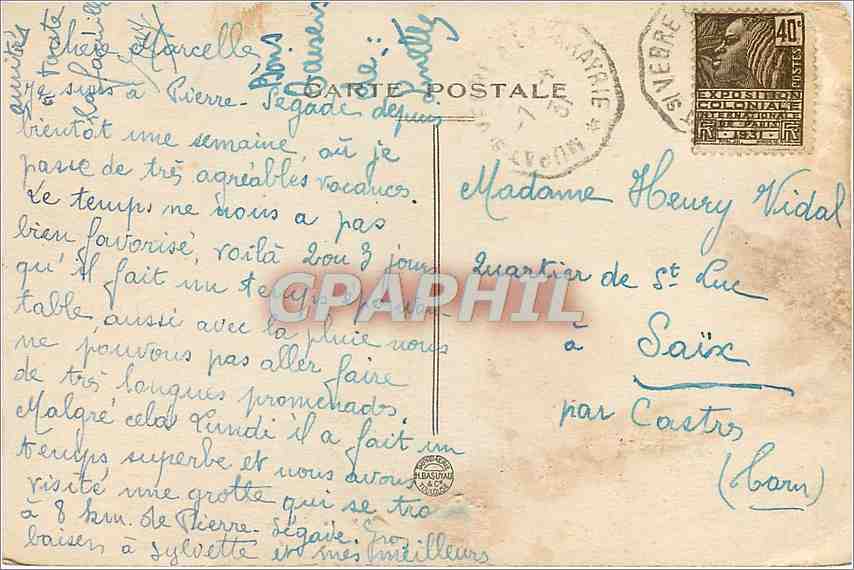 Chère Marcelle,
Je suis à Pierre-Ségade depuis
bientôt une semaine, où je
passe de très agréables vacances.
Le temps ne nous a pas
bien favorisé, voilà 2 ou 3 jours
qu'il fait un temps épouvan
table, aussi avec la pluie nous
ne pouvons pas aller faire
de très longues promenades.
Malgré cela Lundi il a fait un
temps superbe et nous avons
visité une grotte qui se tro
à 8 km. de Pierre-Ségade. Gros
baisers à Sylvette et mes meilleurs
amitiés
à toute
la famille
Bons
Baisers
de:
CARTE POSTALE
MURAT
A S! VEBRE
40c
POSTES
EXPOSITION
COLONIALE
INTERNATIONALE
DE PARIS
1931
Madame Henry Vidal
Quartier de St Luc
à Saïx
par Castres
(Tarn)
H. BASUYAU
& Cie
TOULOUSE
CPAPHIL